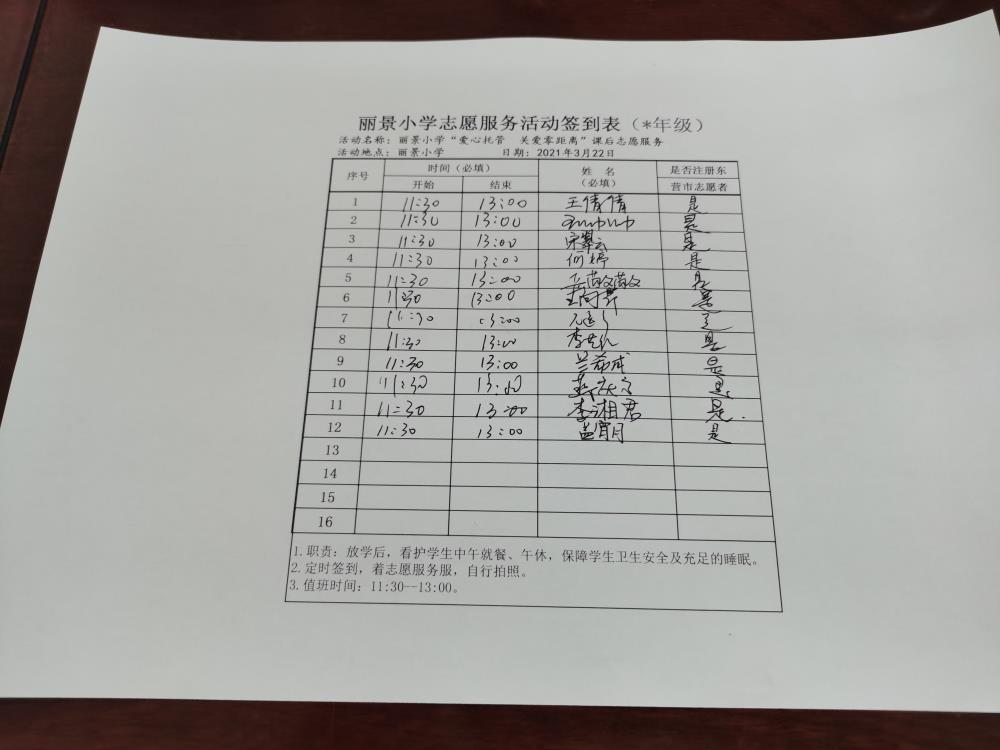 丽景小学志愿服务活动签到表（*年级）
活动名称：丽景小学“爱心托管 关爱零距离”课后志愿服务
活动地点：丽景小学 日期：2021年3月22日
序号 时间（必填） 姓名（必填） 是否注册东营市志愿者
开始 结束
1 11:30 13:00 王倩倩 是
2 11:30 13:00 是
3 11:30 13:00 宋翠云 是
4 11:30 13:00 何婷 是
5 11:30 13:00 敏敏 是
6 11:30 13:00 是
7 11:30 13:00 是
8 11:30 13:00 李 是
9 11:30 13:00 兰 是
10 11:30 13:00 是
11 11:30 13:00 李湘君 是.
12 11:30 13:00 盖宵月 是
13
14
15
16
1.职责：放学后，看护学生中午就餐、午休，保障学生卫生安全及充足的睡眠。
2.定时签到，着志愿服务服，自行拍照。
3.值班时间：11:30--13:00。